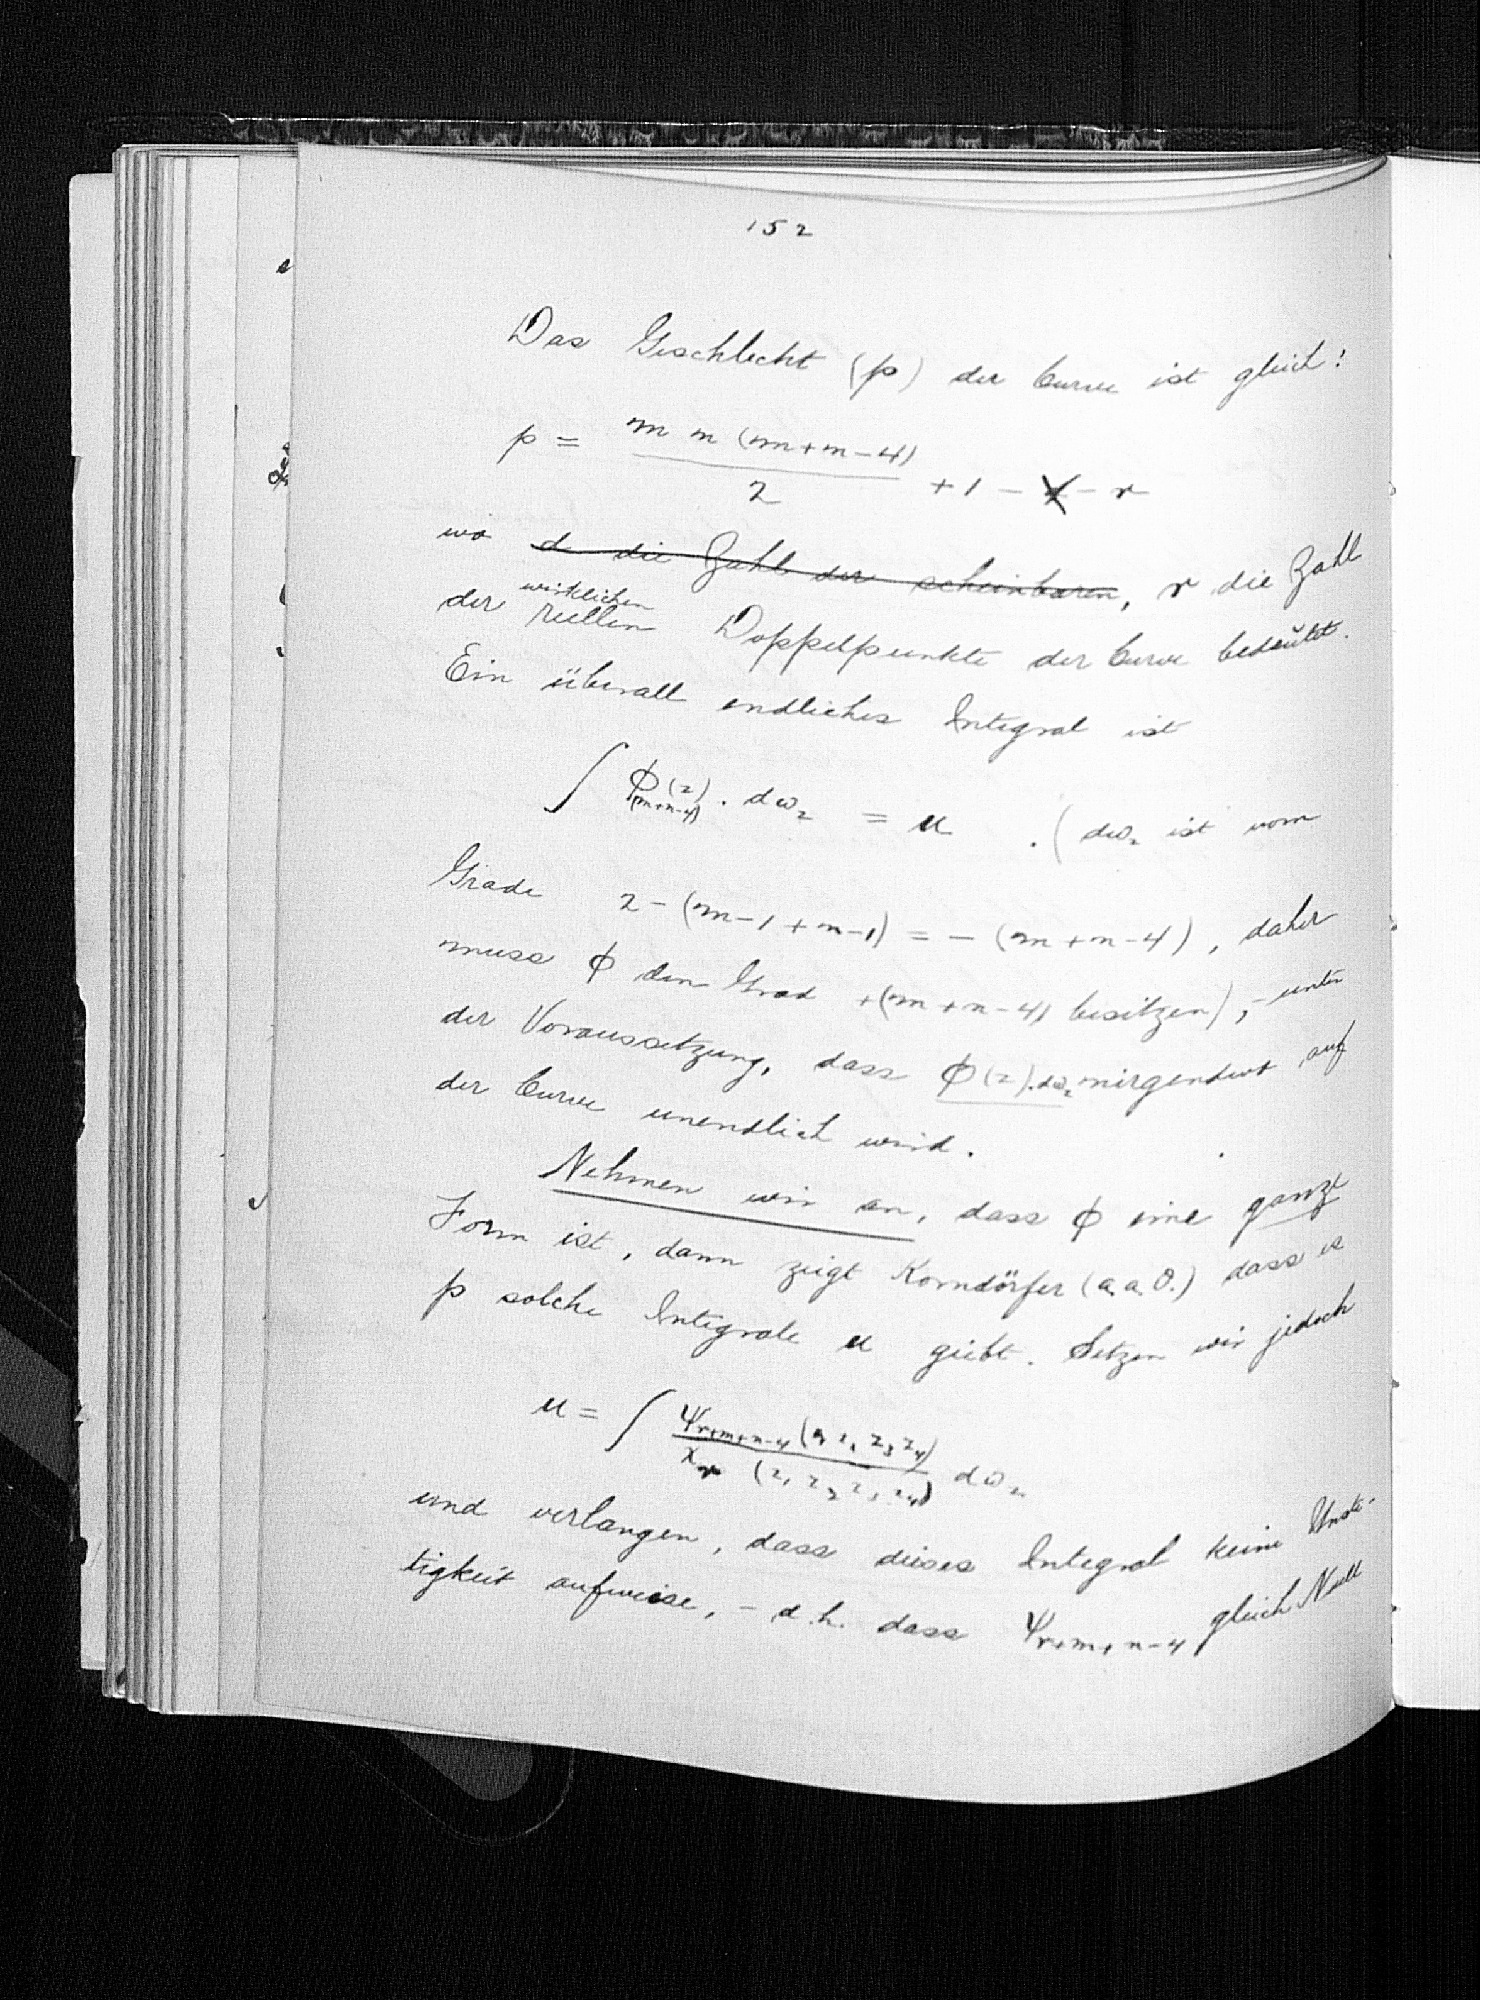 152
Das Geschlecht (p) der Curve ist gleich:
p = m n (m+n-4) / 2 + 1 - d - r
wo d die Zahl der scheinbaren, r die Zahl
wirklichen
der reellen Doppelpunkte der Curve bedeutet.
Ein überall endliches Integral ist
∫ ϕ(z)(m+n-4) . dω₂ = u . (dω₂ ist vom
Grade 2-(m-1+n-1) = -(m+n-4), daher
muss ϕ den Grad +(m+n-4) besitzen), - unter
der Voraussetzung, dass ϕ(z).dω₂ nirgendwo auf
der Curve unendlich wird.
Nehmen wir an, dass ϕ eine ganze
Form ist, dann zeigt Korndörfer (a. a. O.) dass es
p solche Integrale u giebt. Setzen wir jedoch
u = ∫ ψr+m+n-4 (z₁ z₂ z₃ z₄) / χr (z₁ z₂ z₃ z₄) dω₂
und verlangen, dass dieses Integral keine Unste-
tigkeit aufweise, - d.h. dass ψr+m+n-4 gleich Null